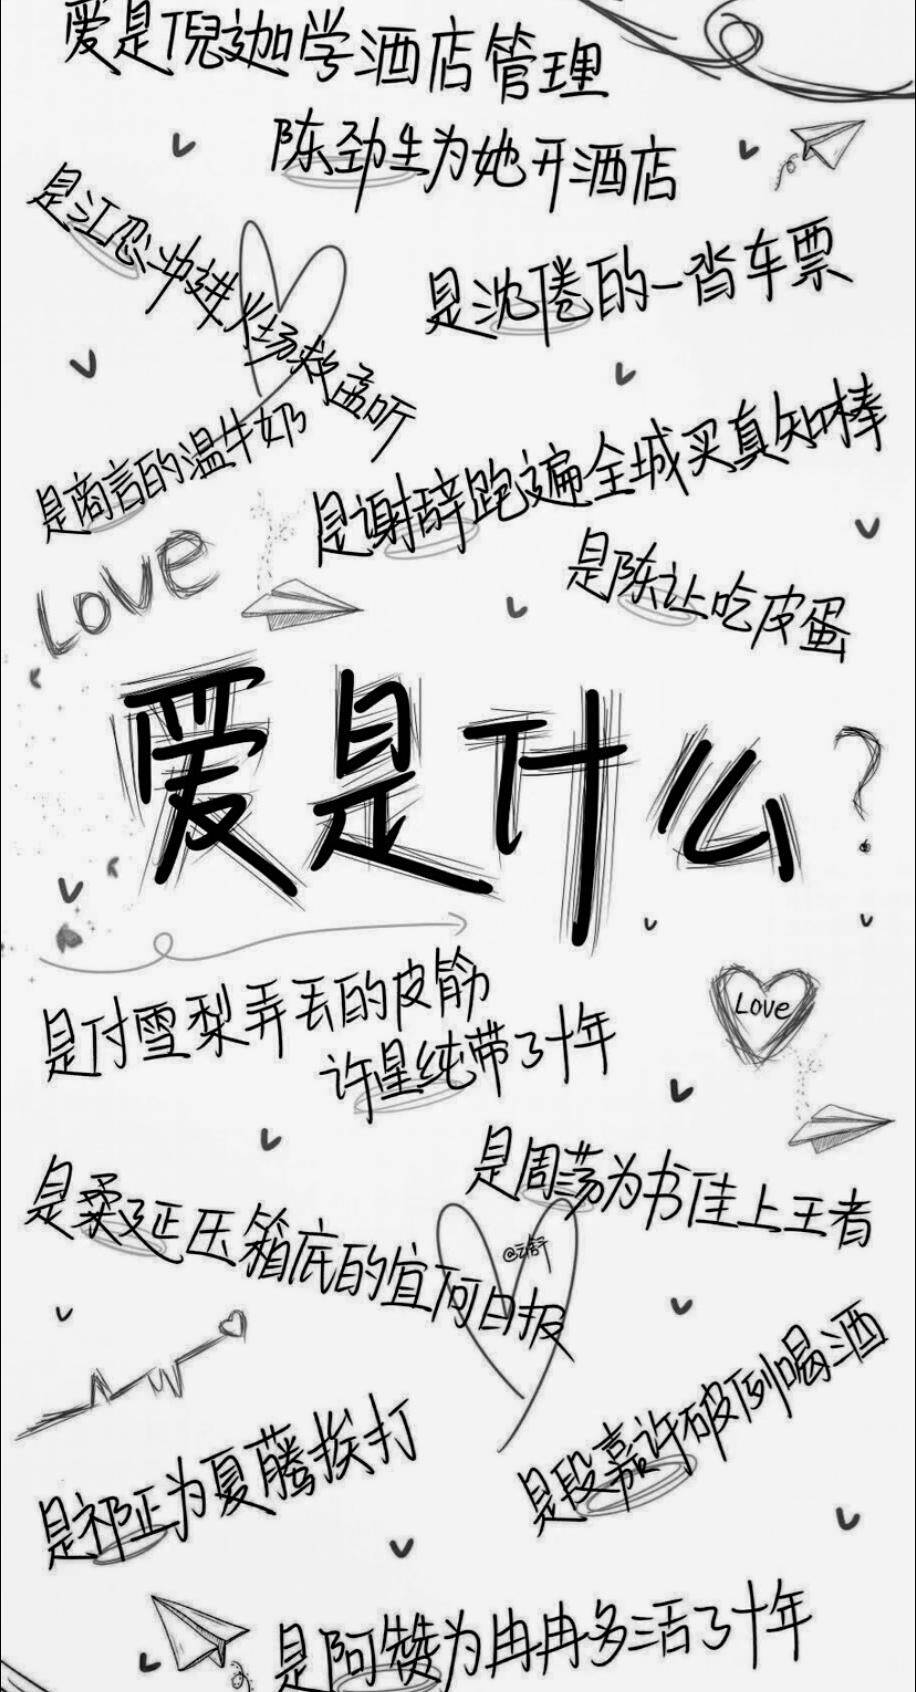 爱是倪迦学酒店管理
陈劲生为她开酒店
是江忍冲进火场救孟听
是沈倦的一沓车票
是商言的温牛奶
是谢辞跑遍全城买真知棒
LOVE
是陈让吃皮蛋
爱是什么?
是付雪梨弄丢的皮筋
许星纯带了十年
Love
是周荡为书佳上王者
是柔延压箱底的宜河日报
是祁正为夏藤挨打
是段嘉许破例喝酒
是阿赞为冉冉多活了十年